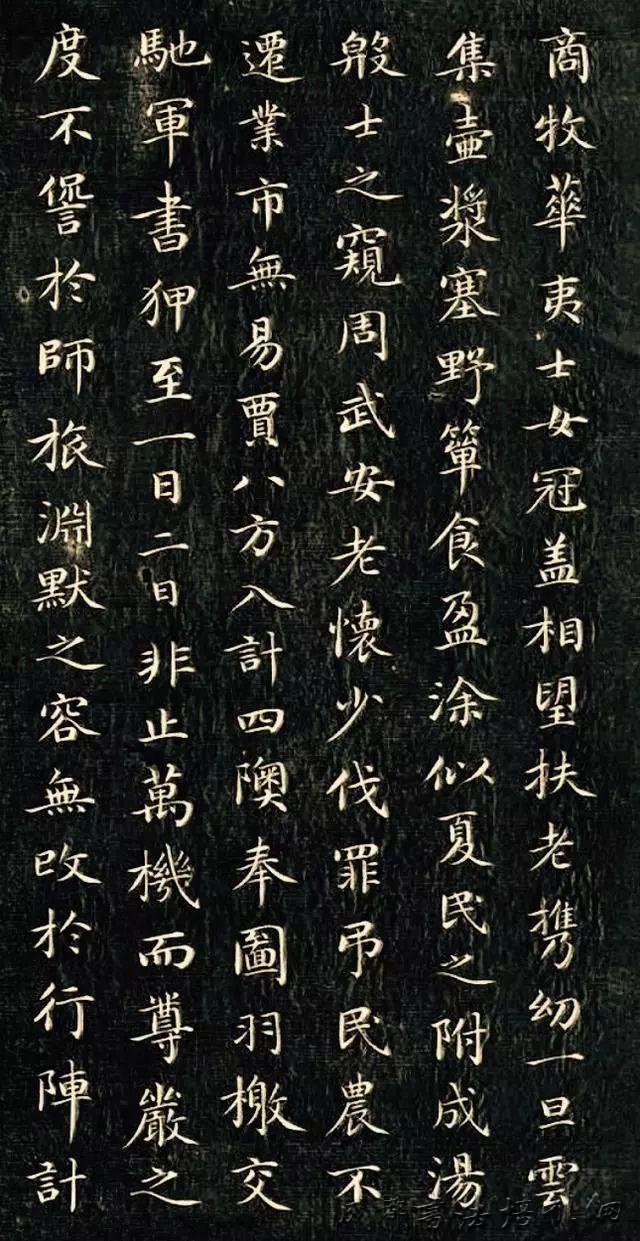 商牧華夷士女冠盖相望扶老攜幼一旦雲
集壺漿塞野簞食盈涂似夏民之附成湯
殷士之窺周武安老懷少伐罪弔民農不
遷業市無易賈八方入計四隩奉圖羽檄交
馳軍書狎至一日二日非止萬機而尊嚴之
度不諐於師旅淵默之容無改於行陣計